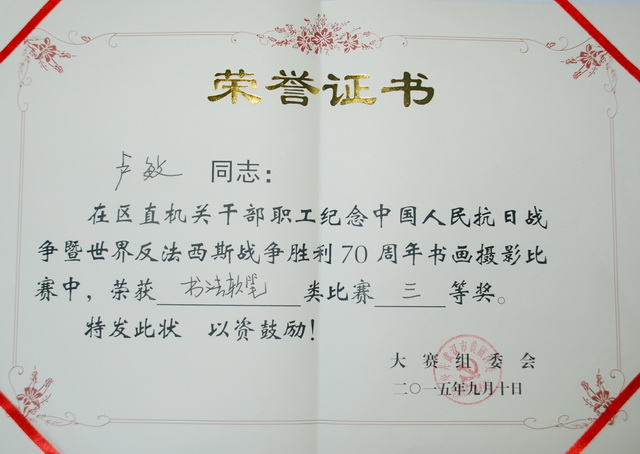 荣誉证书
卢敏 同志：
在区直机关干部职工纪念中国人民抗日战
争暨世界反法西斯战争胜利70周年书画摄影比
赛中，荣获 书法软笔 类比赛 三 等奖。
特发此状 以资鼓励！
大赛组委会
二〇一五年九月十日